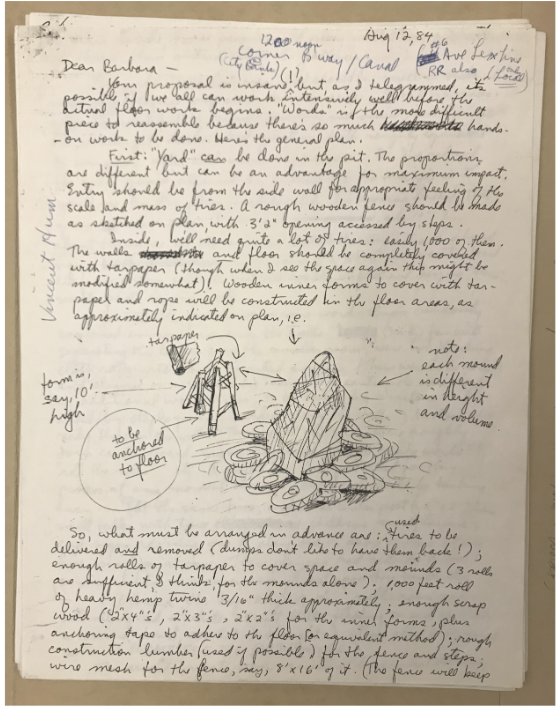 1200 noon
Corner B'way / Canal
(City Bank)
Aug 12, 84
#6
Ave Lexline
RR also (Local)
Dear Barbara —
Your proposal is insane (!) but, as I telegrammed, it's
possible if we all can work intensively well before the
actual floor work begins. "Words" is the more difficult
piece to reassemble because there's so much hands-
-on work to be done. Here's the general plan.
First: "Yard" can be done in the pit. The proportions
are different but can be an advantage for maximum impact.
Entry should be from the side wall for appropriate feeling of the
scale and mass of tires. A rough wooden fence should be made
as sketched on plan, with 3'2" opening accessed by steps.
Inside, will need quite a lot of tires: easily 1000 of them.
The walls and floor should be completely covered
with tarpaper (though when I see the space again this might be
modified somewhat). Wooden inner forms to cover with tar-
paper and rope will be constructed in the floor areas, as
approximately indicated on plan, i.e.
Vincent
tarpaper
form is,
say, 10'
high
note:
each mound
is different
in height
and volume
to be
anchored
to floor
So, what must be arranged in advance are: used tires to be
delivered and removed (dumps don't like to have them back!);
enough rolls of tarpaper to cover space and mounds (3 rolls
are sufficient, I think, for the mounds alone); 1,000 feet roll
of heavy hemp twine 3/16" thick approximately; enough scrap
wood (2"x4"s, 2"x3"s, 2"x2"s for the inner forms, plus
anchoring tape to adhere to the floor (or equivalent method); rough
construction lumber (used if possible) for the fence and steps;
wire mesh for the fence, say, 8'x16' of it. (The fence will keep